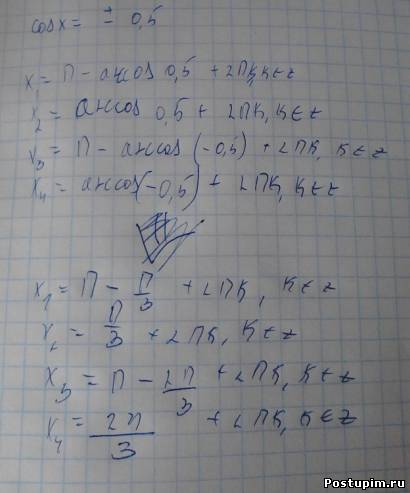 cosx = ± 0,5
x₁ = П - arccos 0,5 + 2Пk, k∈z
x₂ = arccos 0,5 + 2Пk, k∈z
x₃ = П - arccos (-0,5) + 2Пk, k∈z
x₄ = arccos(-0,5) + 2Пk, k∈z
x₁ = П - П/3 + 2Пk, k∈z
x₂ = П/3 + 2Пk, k∈z
x₃ = П - 2П/3 + 2Пk, k∈z
x₄ = 2П/3 + 2Пk, k∈z
Postupim.ru